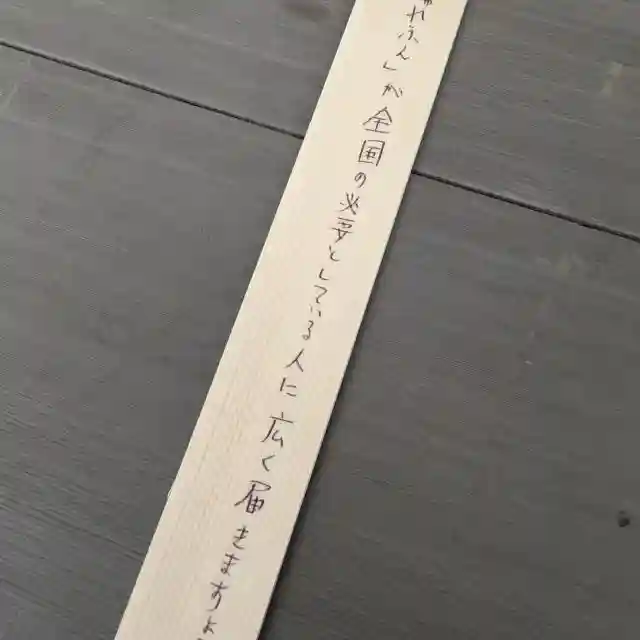 れふん」が全国の必要としている人に広く届きますよ